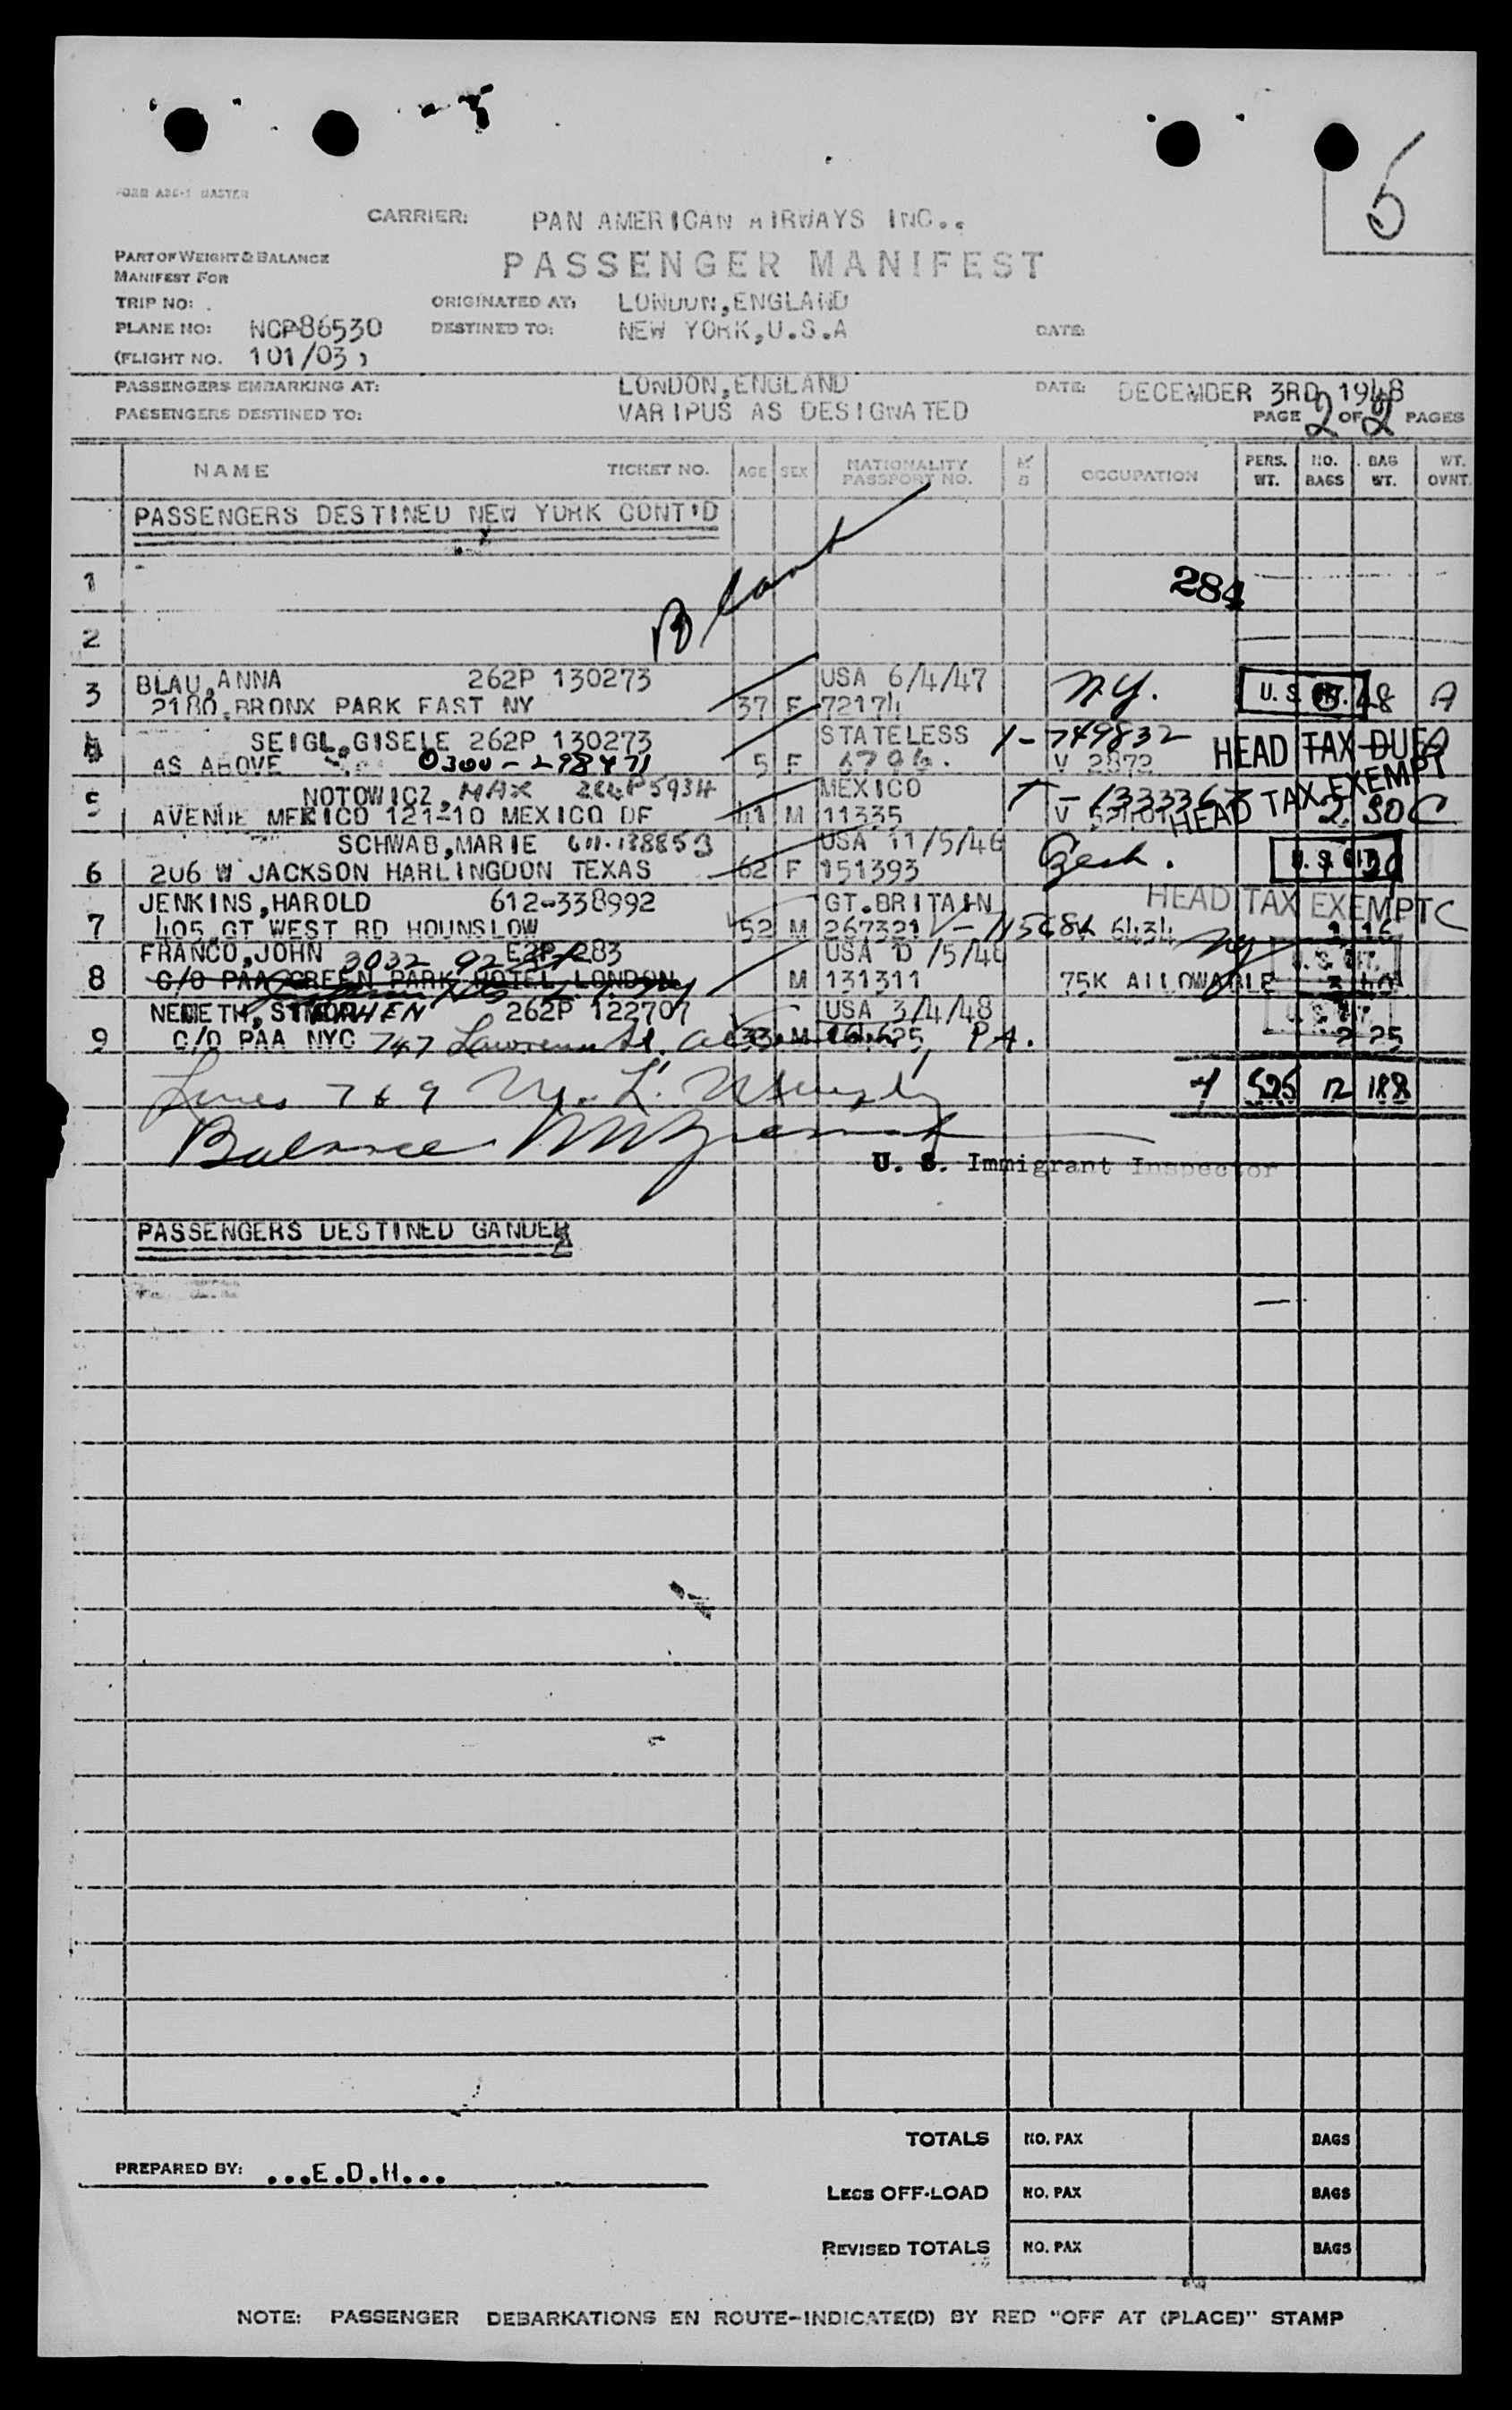 5
FORM ABC-1 MASTER
CARRIER: PAN AMERICAN AIRWAYS INC..
PART OF WEIGHT & BALANCE
MANIFEST FOR
PASSENGER MANIFEST
TRIP NO: . ORIGINATED AT: LONDON,ENGLAND
PLANE NO: NCP86530 DESTINED TO: NEW YORK,U.S.A DATE:
(FLIGHT NO. 101/03 )
PASSENGERS EMBARKING AT: LONDON,ENGLAND DATE: DECEMBER 3RD 1948
PASSENGERS DESTINED TO: VARIPUS AS DESIGNATED PAGE 2 OF 2 PAGES
NAME TICKET NO. AGE SEX NATIONALITY PASSPORT NO. OCCUPATION PERS. WT. NO. BAGS BAG WT. WT. OVNT.
PASSENGERS DESTINED NEW YORK CONT'D
1 284
2
BLAU,ANNA 262P 130273 USA 6/4/47 N.Y.
3 2180,BRONX PARK EAST NY 37 F 72174 U.S. CIT. 28 A
SEIGL,GISELE 262P 130273 STATELESS 1-749832
4 AS ABOVE 0300-298471 5 F 6796. V 2872 HEAD TAX DUE
NOTOWICZ,MAX 264P5934 MEXICO HEAD TAX EXEMPT
5 AVENUE MEXICO 121-10 MEXICO DF 41 M 11335 2 30 C
SCHWAB,MARIE USA 11/5/46
6 206 W JACKSON HARLINGDON TEXAS 62 F 151393 U.S. CIT.
JENKINS,HAROLD 612-338992 GT.BRITAIN HEAD TAX EXEMPT C
7 405,GT WEST RD HOUNSLOW 52 M 267321 6434 1 16
FRANCO,JOHN 3032 USA D /5/46 NY U.S. CIT.
8 C/O PAA GREEN PARK HOTEL LONDON M 131311 75K ALLOWABLE
NEMETH, STEPHEN 262P 122707 USA 3/4/48
9 C/O PAA NYC 747 33 M PA. 2 25
Lines 7 & 9 7 525 12 188
Balance
U. S. Immigrant Inspector
PASSENGERS DESTINED GANDER
TOTALS NO. PAX BAGS
PREPARED BY: ...E.D.H...
LESS OFF-LOAD NO. PAX BAGS
REVISED TOTALS NO. PAX BAGS
NOTE: PASSENGER DEBARKATIONS EN ROUTE-INDICATE(D) BY RED "OFF AT (PLACE)" STAMP